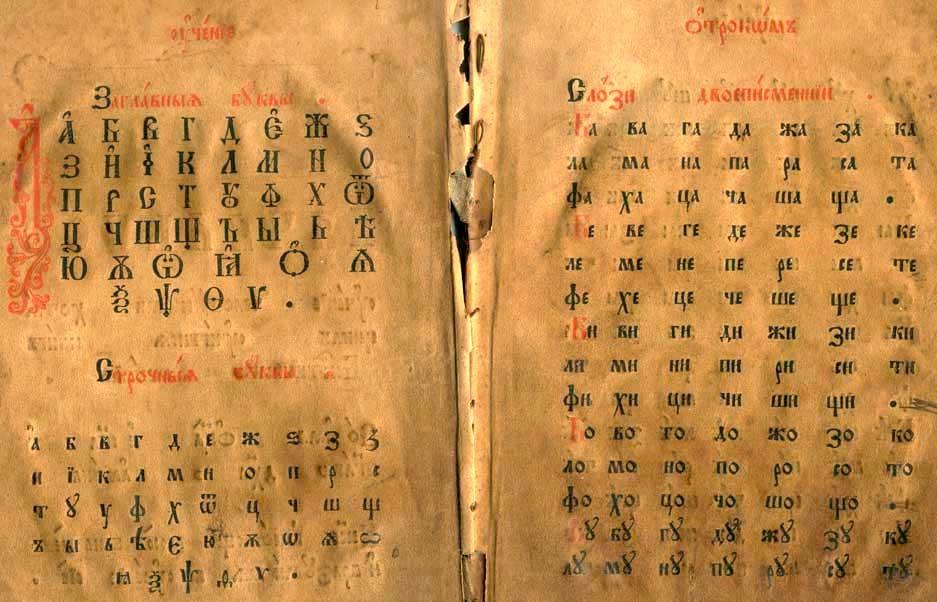 оу҆че́нїе
Загла́вныѧ бꙋ́квы .
А҆ Б В Г Д Є҆ Ж Ѕ
З И҆ І҆ К Л М Н О
П Р С Т Ꙋ Ф Х Ѿ
Ц Ч Ш Щ Ъ Ы Ь Ѣ
Ю Ѫ Ѡ҆ Ꙗ҆ Ѻ Ѧ
Ѯ Ѱ Ѳ Ѵ .
Стро́чныѧ бꙋ́квы
а б в г д е ж ѕ з
и ї к л м н о п р с
т ꙋ у ф х ѿ ц ч ш щ
ъ ы ь ѣ є ю ѫ ѡ ѧ
ꙗ ѯ ѱ ѳ ѵ .
Ѻ҆трокѡ́мъ
Сло́зи двоепи́сменнїи .
Ба ва га да жа за ка
ла ма на па ра са та
фа ха ца ча ша ща .
Бе ве ге де же зе ке
ле ме не пе ре се те
фе хе це че ше ще .
Би ви ги ди жи зи ки
ли ми ни пи ри си ти
фи хи ци чи ши щи .
Бо во го до жо зо ко
ло мо но по ро со то
фо хо цо чо шо що .
Бꙋ вꙋ гꙋ дꙋ жꙋ зꙋ кꙋ
лꙋ мꙋ нꙋ пꙋ рꙋ сꙋ тꙋ